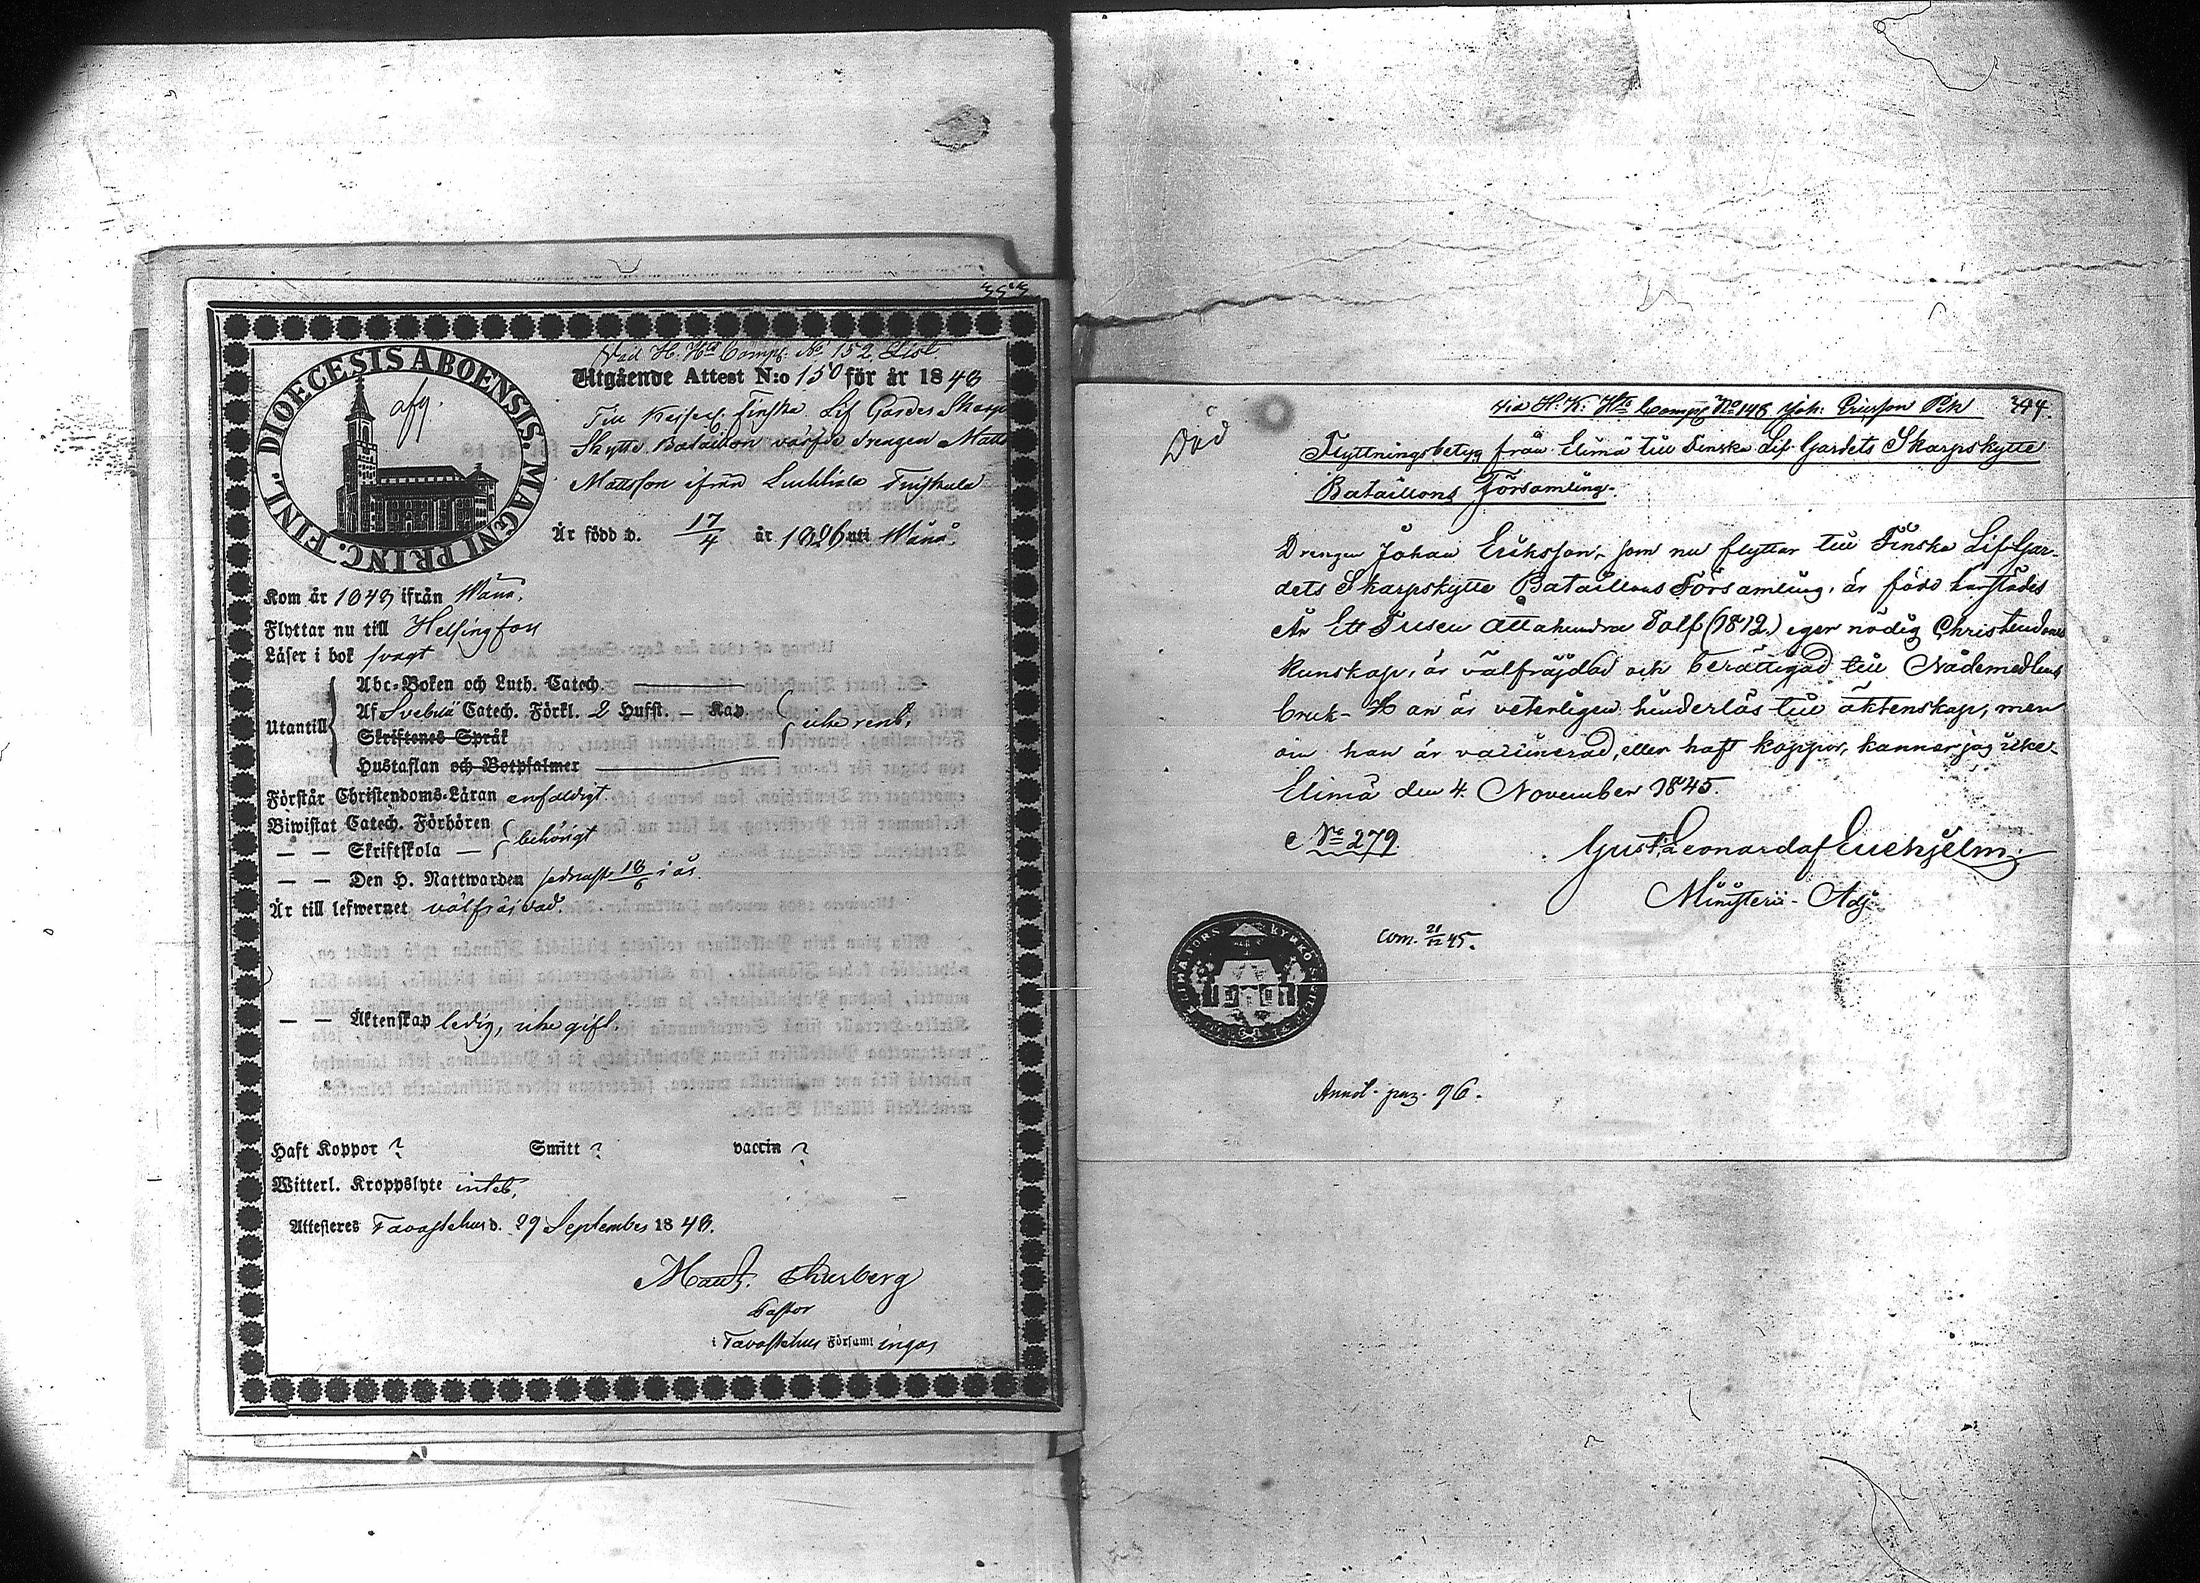 353
DIOECESIS ABOENSIS. MAGNI PRINC. FINL.
afg.
Vid H. Hds Comp. No 152 List
Utgående Attest N:o 150 för år 1843
Till Kejserl. Finska Lif Gardes Skarp
Skytte Bataillon värfde drengen Matts
Mattsson ifrån
Är född d. 17/4 år 1826 uti Wånå
Kom år 1843 ifrån Wånå.
Flyttar nu till Helsingfors
Läser i bok svagt
Utantill
Abc-Boken och Luth. Catech.
Af Svebelii Catech. Förkl. 2 Hufst. — Kap
Skriftenes Språk
Hustaflan och Botpsalmer
icke rent.
Förstår Christendoms-Läran enfaldigt.
Biwistat Catech. Förhören
— — Skriftskola —
behörigt
— — Den H. Nattwarden sednast 18/6 i år.
Är till lefwernet välfräjdad.
— — Äktenskap ledig, icke gift.
Haft Koppor ? Smitt ? vaccin ?
Witterl. Kroppslyte intet,
Attesteres Tavastehus d. 29 September 1843.
Pastor
i Tavastehus Församlingar
vid H. K: Hds Compi No 148 Joh: Ericsson Bk 344.
Död
Flyttningsbetyg från Elimä till Finska Lif-Gardets Skarpskytte
Bataillons Församling.
Drengen Johan Eriksson, som nu flyttar till Finska Lif-Gar-
dets Skarpskytte Bataillons Församling, är född härstädes
År Ett Tusen Åttahundra Tolf (1812.) eger nödig Christendoms
kunskap, är välfräjdad och berättigad till Nådemedlens
bruk- Han är veterligen hinderlös till äktenskap, men
om han är vaccinerad, eller haft koppor, känner jag icke.
Elimä den 4. November 1845.
No 279.
Gust: Leonard af Enehjelm.
Ministerii-Adj.
com. 21/12 45.
Annot. pag. 96.